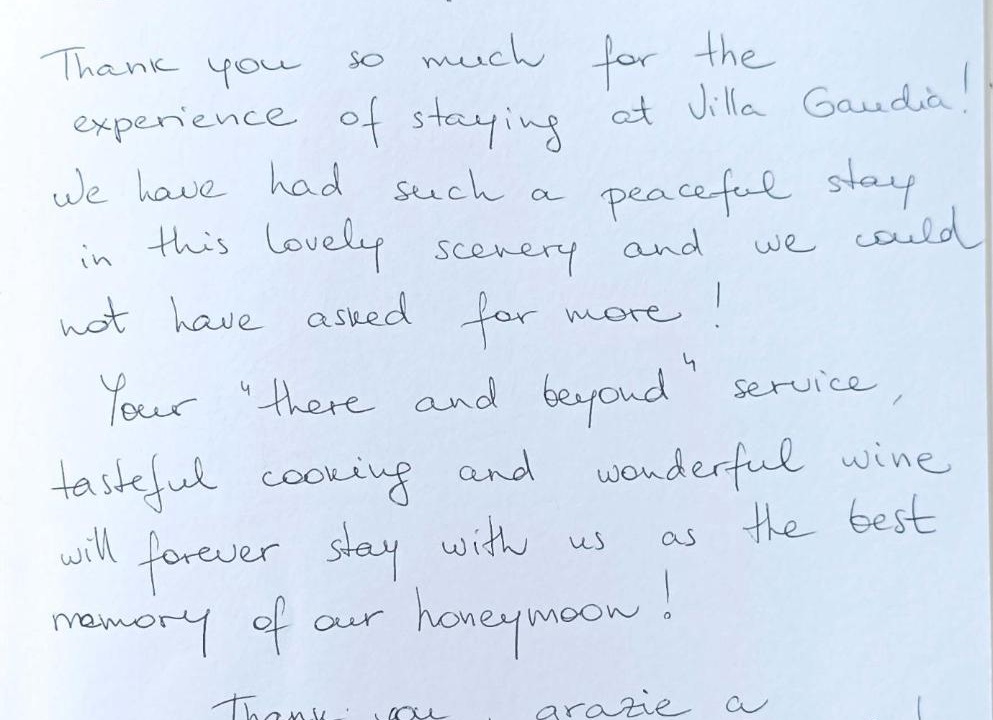 Thank you so much for the
experience of staying at Villa Gaudià!
We have had such a peaceful stay
in this lovely scenery and we could
not have asked for more!
Your "there and beyond" service,
tasteful cooking and wonderful wine
will forever stay with us as the best
memory of our honeymoon!
Thank you, grazie a